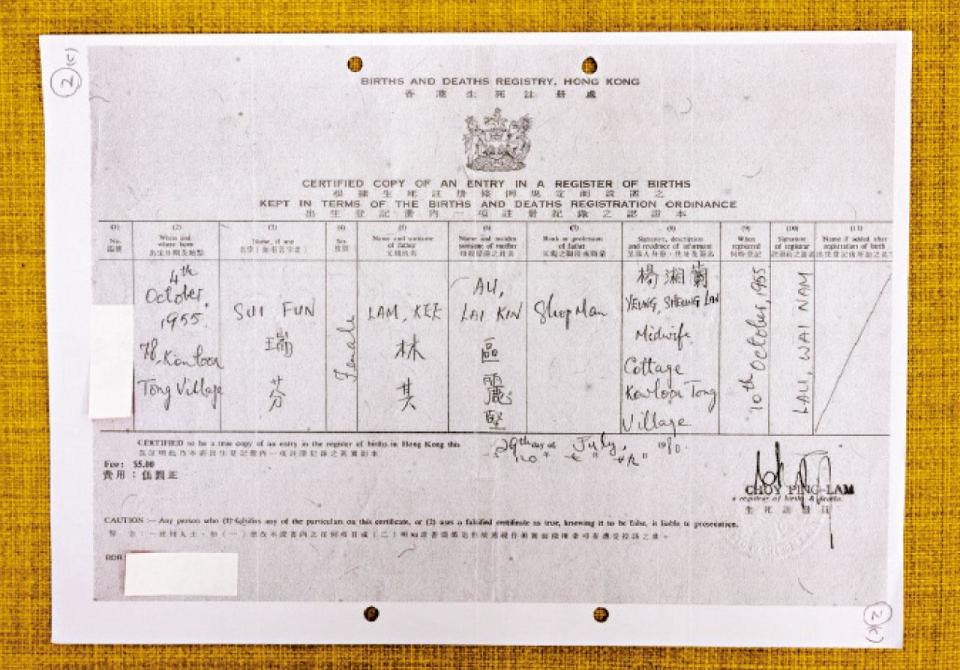 2(c)
BIRTHS AND DEATHS REGISTRY, HONG KONG
香港生死註册處
CERTIFIED COPY OF AN ENTRY IN A REGISTER OF BIRTHS
KEPT IN TERMS OF THE BIRTHS AND DEATHS REGISTRATION ORDINANCE
出生登記册內一項註册記錄之認證本
(1) (2) (3) (4) (5) (6) (7) (8) (9) (10) (11)
No.
When and where born
Name, if any
Sex
Name and surname of father
Name and maiden surname of mother
Rank or profession of father
Signature, description and residence of informant
When registered
Signature of registrar
Name if added after registration of birth
4th October, 1955.
Kowloon Tong Village
SUI FUN
瑞芬
Female
LAM, KEE
林其
AU, LAI KIN
區麗堅
Shop Man
楊湘蘭
YEUNG, SHEUNG LAN
Midwife
Cottage
Kowloon Tong
Village
10th October, 1955
LAU, WAI NAM
CERTIFIED to be a true copy of an entry in the register of births in Hong Kong this 29th day of July, 1980.
Fee: $5.00
費用：伍圓正
CHOY PING-LAM
a registrar of births & deaths.
生死註册官
CAUTION :— Any person who (1) falsifies any of the particulars on this certificate, or (2) uses a falsified certificate as true, knowing it to be false, is liable to prosecution.
BDR
2(c)